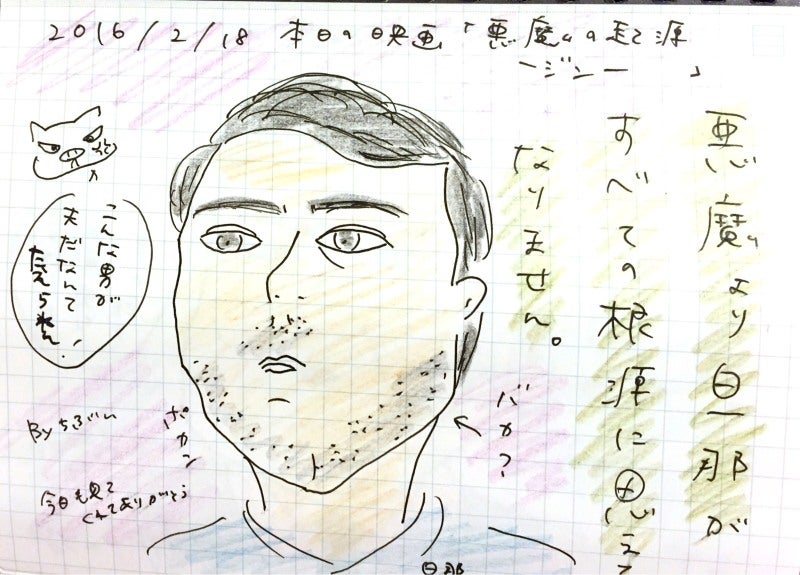 2016/2/18 本日の映画「悪魔の起源
ージンー」
悪魔より旦那が
すべての根源に思えて
なりません。
こんな男が
夫だなんて
たえられん!
バカ?
ポカン
Byちぶぃ
今日も見て
くれてありがとう
旦那